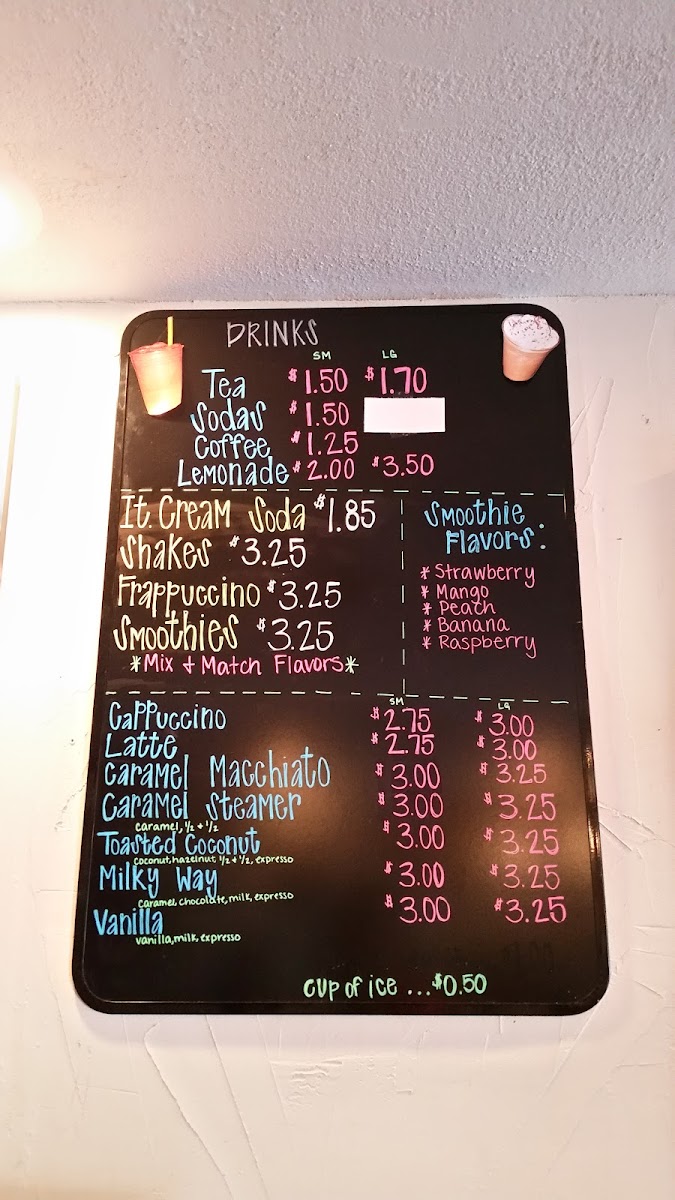 DRINKS
SM LG
Tea $1.50 $1.70
Sodas $1.50
Coffee $1.25
Lemonade $2.00 $3.50
It. Cream Soda $1.85
Shakes $3.25
Frappuccino $3.25
Smoothies $3.25
*Mix + Match Flavors*
Smoothie
Flavors:
* Strawberry
* Mango
* Peach
* Banana
* Raspberry
SM LG
Cappuccino $2.75 $3.00
Latte $2.75 $3.00
Caramel Macchiato $3.00 $3.25
Caramel Steamer $3.00 $3.25
caramel, 1/2 + 1/2
Toasted Coconut $3.00 $3.25
coconut, hazelnut, 1/2 + 1/2, expresso
Milky Way $3.00 $3.25
caramel, chocolate, milk, expresso
Vanilla $3.00 $3.25
vanilla, milk, expresso
cup of ice ...$0.50